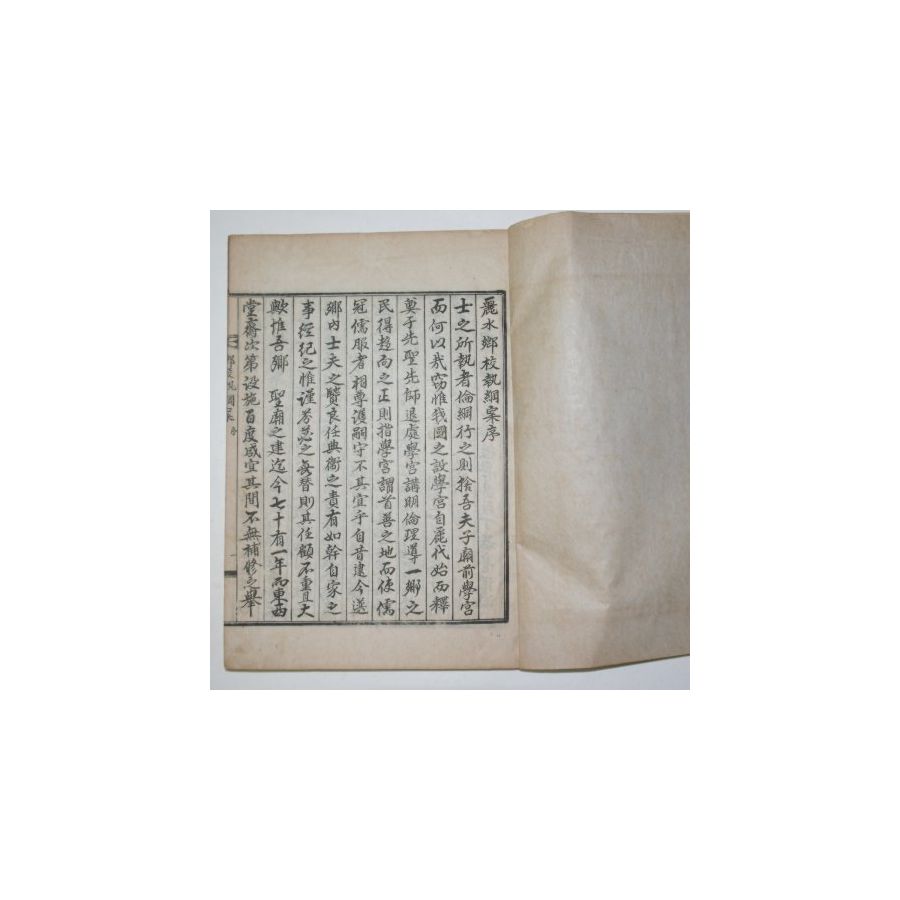 麗水鄉校執綱案序
士之所執者倫綱行之則捨吾夫子廟前學宮
而何以哉窃惟我國之設學宮自麗代始而釋
奠于先聖先師退處學宮講明倫理導一鄉之
民得趍向之正則指學宮謂首善之地而使儒
冠儒服者相尊護嗣守不其宜乎自昔逮今遴
鄉內士夫之賢良任典衛之責有如幹自家之
事經紀之惟謹芬苾之無替則其任顧不重且大
歟惟吾鄉 聖廟之建迄今七十有一年而東西
堂齋次第設施百度咸宜其間不無補修之擧
鄉校執綱案 序
一